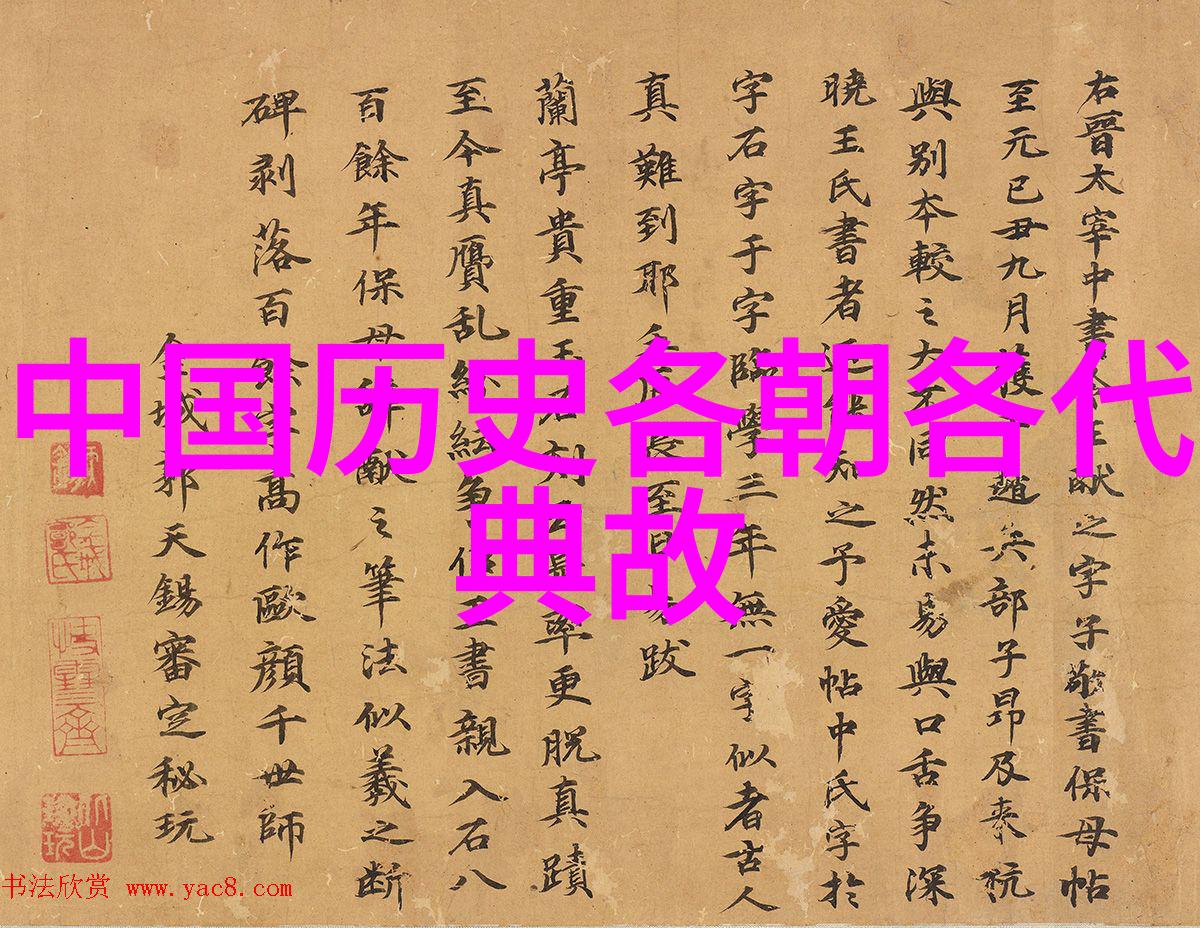 中国历史各朝各代
典故
右晉太宰中書令王獻之字子敬書保母帖
至元己丑九月獲 趙兵部子昂及來杭
與別本較之大不同然未易與口舌爭深
曉王氏書者 知之予愛帖中氏字於
字石字于字臨學三年無一字似者古人
真難到耶 至 跋
蘭亭貴重玉石刻 率更脱真蹟
至今真贋乱紛紜争 王書親入石八
百餘年保母 献之筆法似羲之断
碑剥落百餘 高作歐顔千世師
金城郭天錫審定秘玩
书法欣赏 www.yac8.com